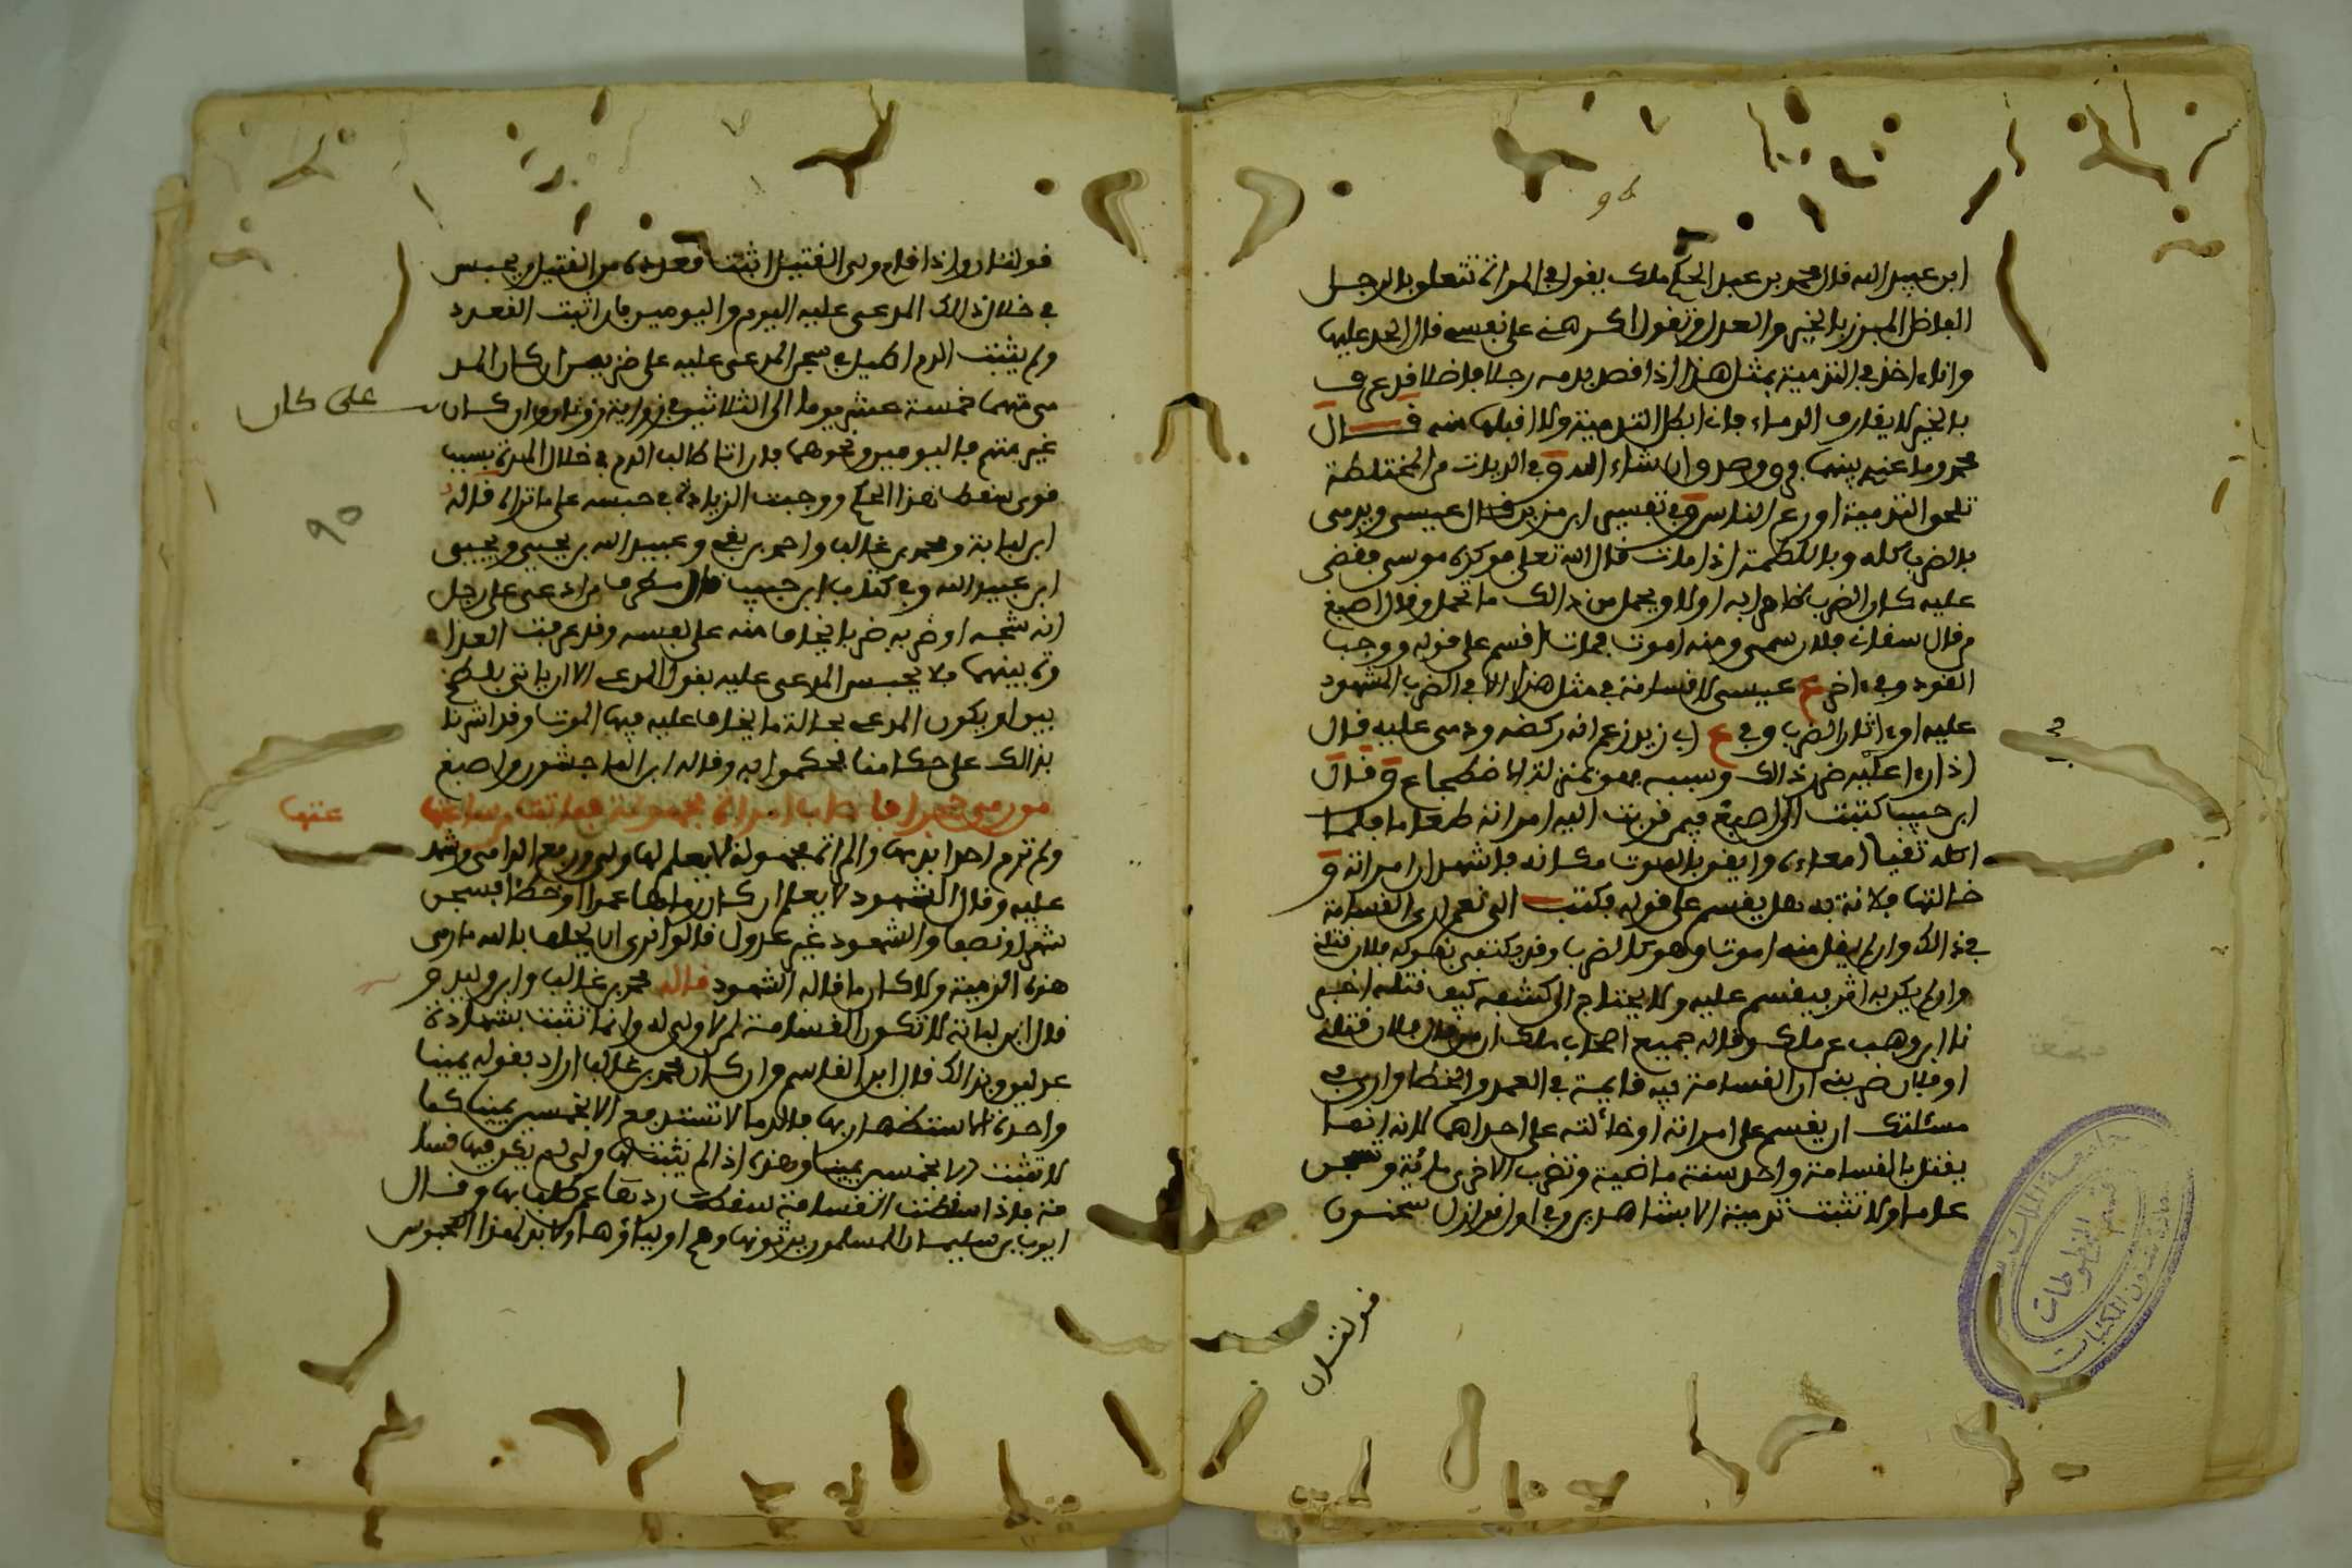 ابن عبيد الله قال محمد بن عبد الحكم ملك يقول في المراة تتعلق بالرجل
الفاضل المبرز بالخير والعدل وتقول اكرهني على نفسي قال الحد عليها
وانا اخذ في التدمية بمثل هذا اذا قصد بدمه رجلا فاضلا قد عرف
بالخير لا يقارف الدماء فانا ابطل التدمية ولا اقبلها منه قال
محمد وما عنيه بينهما فرق وهو ان شاء الله في الديات من المختلطة
تلحق التدمية اورع الناس وفي تفسير ابن مزين قال عيسى ويدمى
بالضرب كله وباللطمة اذا مات قال الله تعلى فوكزه موسى فقضى
عليه كان الضرب ظاهرا به اولا ويحمل من ذالك ما تحمل وقال اصبغ
من قال سقاني فلان سما ومنه اموت فمات اقسم على قوله ووجب
القود وفي اخر ع عيسى لا قسامة في مثل هذا الا في الضرب المشهود
عليه او اثار الضرب وفي ع ابي زيد زعم انه ركضه ودمى عليه قال
اذا را عليه ضر ذالك وسببه فهو بمنزلة الاضطجاع وقال
ابن حبيب كتبت الى اصبغ فيمن قربت اليه امراته طعاما فلما
اكله تقيا امعاءه وايقن بالموت مكانه فاشهد ان امراته و
خالتها فلانة به هل يقسم على قوله فكتب الي نعم ارى القسامة
في ذالك وان لم يقل منه اموت وهو كالضرب وقد يكتفي بقوله فلان قتلني
وان لم يكن به اثر فيقسم عليه ولا يحتاج الى كشفه كيف قتله اخبر
نا ابن وهب عن ملك وقاله جميع اصحاب ملك ان من قال فلان قتلني
او فلان ضربني ان القسامة فيه قايمة في العمد والخطا وارى في
مسئلتك ان يقسم على امراته او خالته على احداهما لانه انما
يقتل بالقسامة واحد سنة ماضية وتضرب الاخرى مائة وتسجن
عاما ولا تثبت تدمية الا بشاهدين وفي اول اقوال سحنون
قولتان
قولتان واذا قام ولي القتيل اثبت قعدده من القتيل ويحبس
في خلال ذالك المدعى عليه اليوم واليومين فان اثبت القعدد
ولم يثبت الدم اطيل في سجن المدعى عليه على ضربين ان كان المد
مى متهما خمسة عشر يوما الى الثلاثين في رواية زونان وان كان
غير متهم فاليومين ونحوهما فان اتا طالب الدم في خلال المدة بسبب
قوي سقط هذا الحكم ووجبت الزيادة في حبسه على ما تراه قاله
ابن لبابة ومحمد بن غالب واحمد بن بقي وعبيد الله بن يحيى ويحيى
ابن عبيد الله وفي كتاب ابن حبيب قال مطرف من ادعى على رجل
انه شجه او ضربه ضربا يخاف منه على نفسه وقد عرفت العدا
وة بينهما فلا يحبس المدعى عليه بقول المدعي الا ان ياتي بلطخ
بين او يكون المدعي بحالة ما يخاف عليه فيها الموت وقد اشرنا
بذالك على حكامنا فحكموا به وقاله ابن الماجشون واصبغ
من رمى حجرا فاصاب امراة مجهولة فماتت من ساعتها
ولم ترم احدا بدمها والمراة مجهولة لا يعلم لها ولي ورفع الرامي وشهد
عليه وقال الشهود لا يعلم ان كان رماها عمدا او خطا فسجن
شهرا ونصفا والشهود غير عدول قالوا نرى ان يحلف بالله ما رمى
هذه الرمية ولا كان ما قاله الشهود قاله محمد بن غالب وابن وليد و
قال ابن لبابة لا تكون القسامة لمن لا ولي له وانما تثبت بشهادة
عدلين وبذالك قال ابن القاسم وان كان محمد بن غالب اراد بقوله يمينا
واحدة انما استظهار بها فالدما لا تستدفع الا بخمسين يمينا كما
لا تثبت الا بخمسين يمينا وهذه اذ لم يثبت لها ولي لم يكن فيها قسا
مة فاذا سقطت القسامة سقطت ردها عمن طلب بها وقال
ايوب بن سليمان المسلمون يرثونها وهم اولياؤها ولا بد لهذا المحبوس
على كان
عنها
٩٥
جامعة الملك
قسم المخطوطات
عمادة شؤون المكتبات